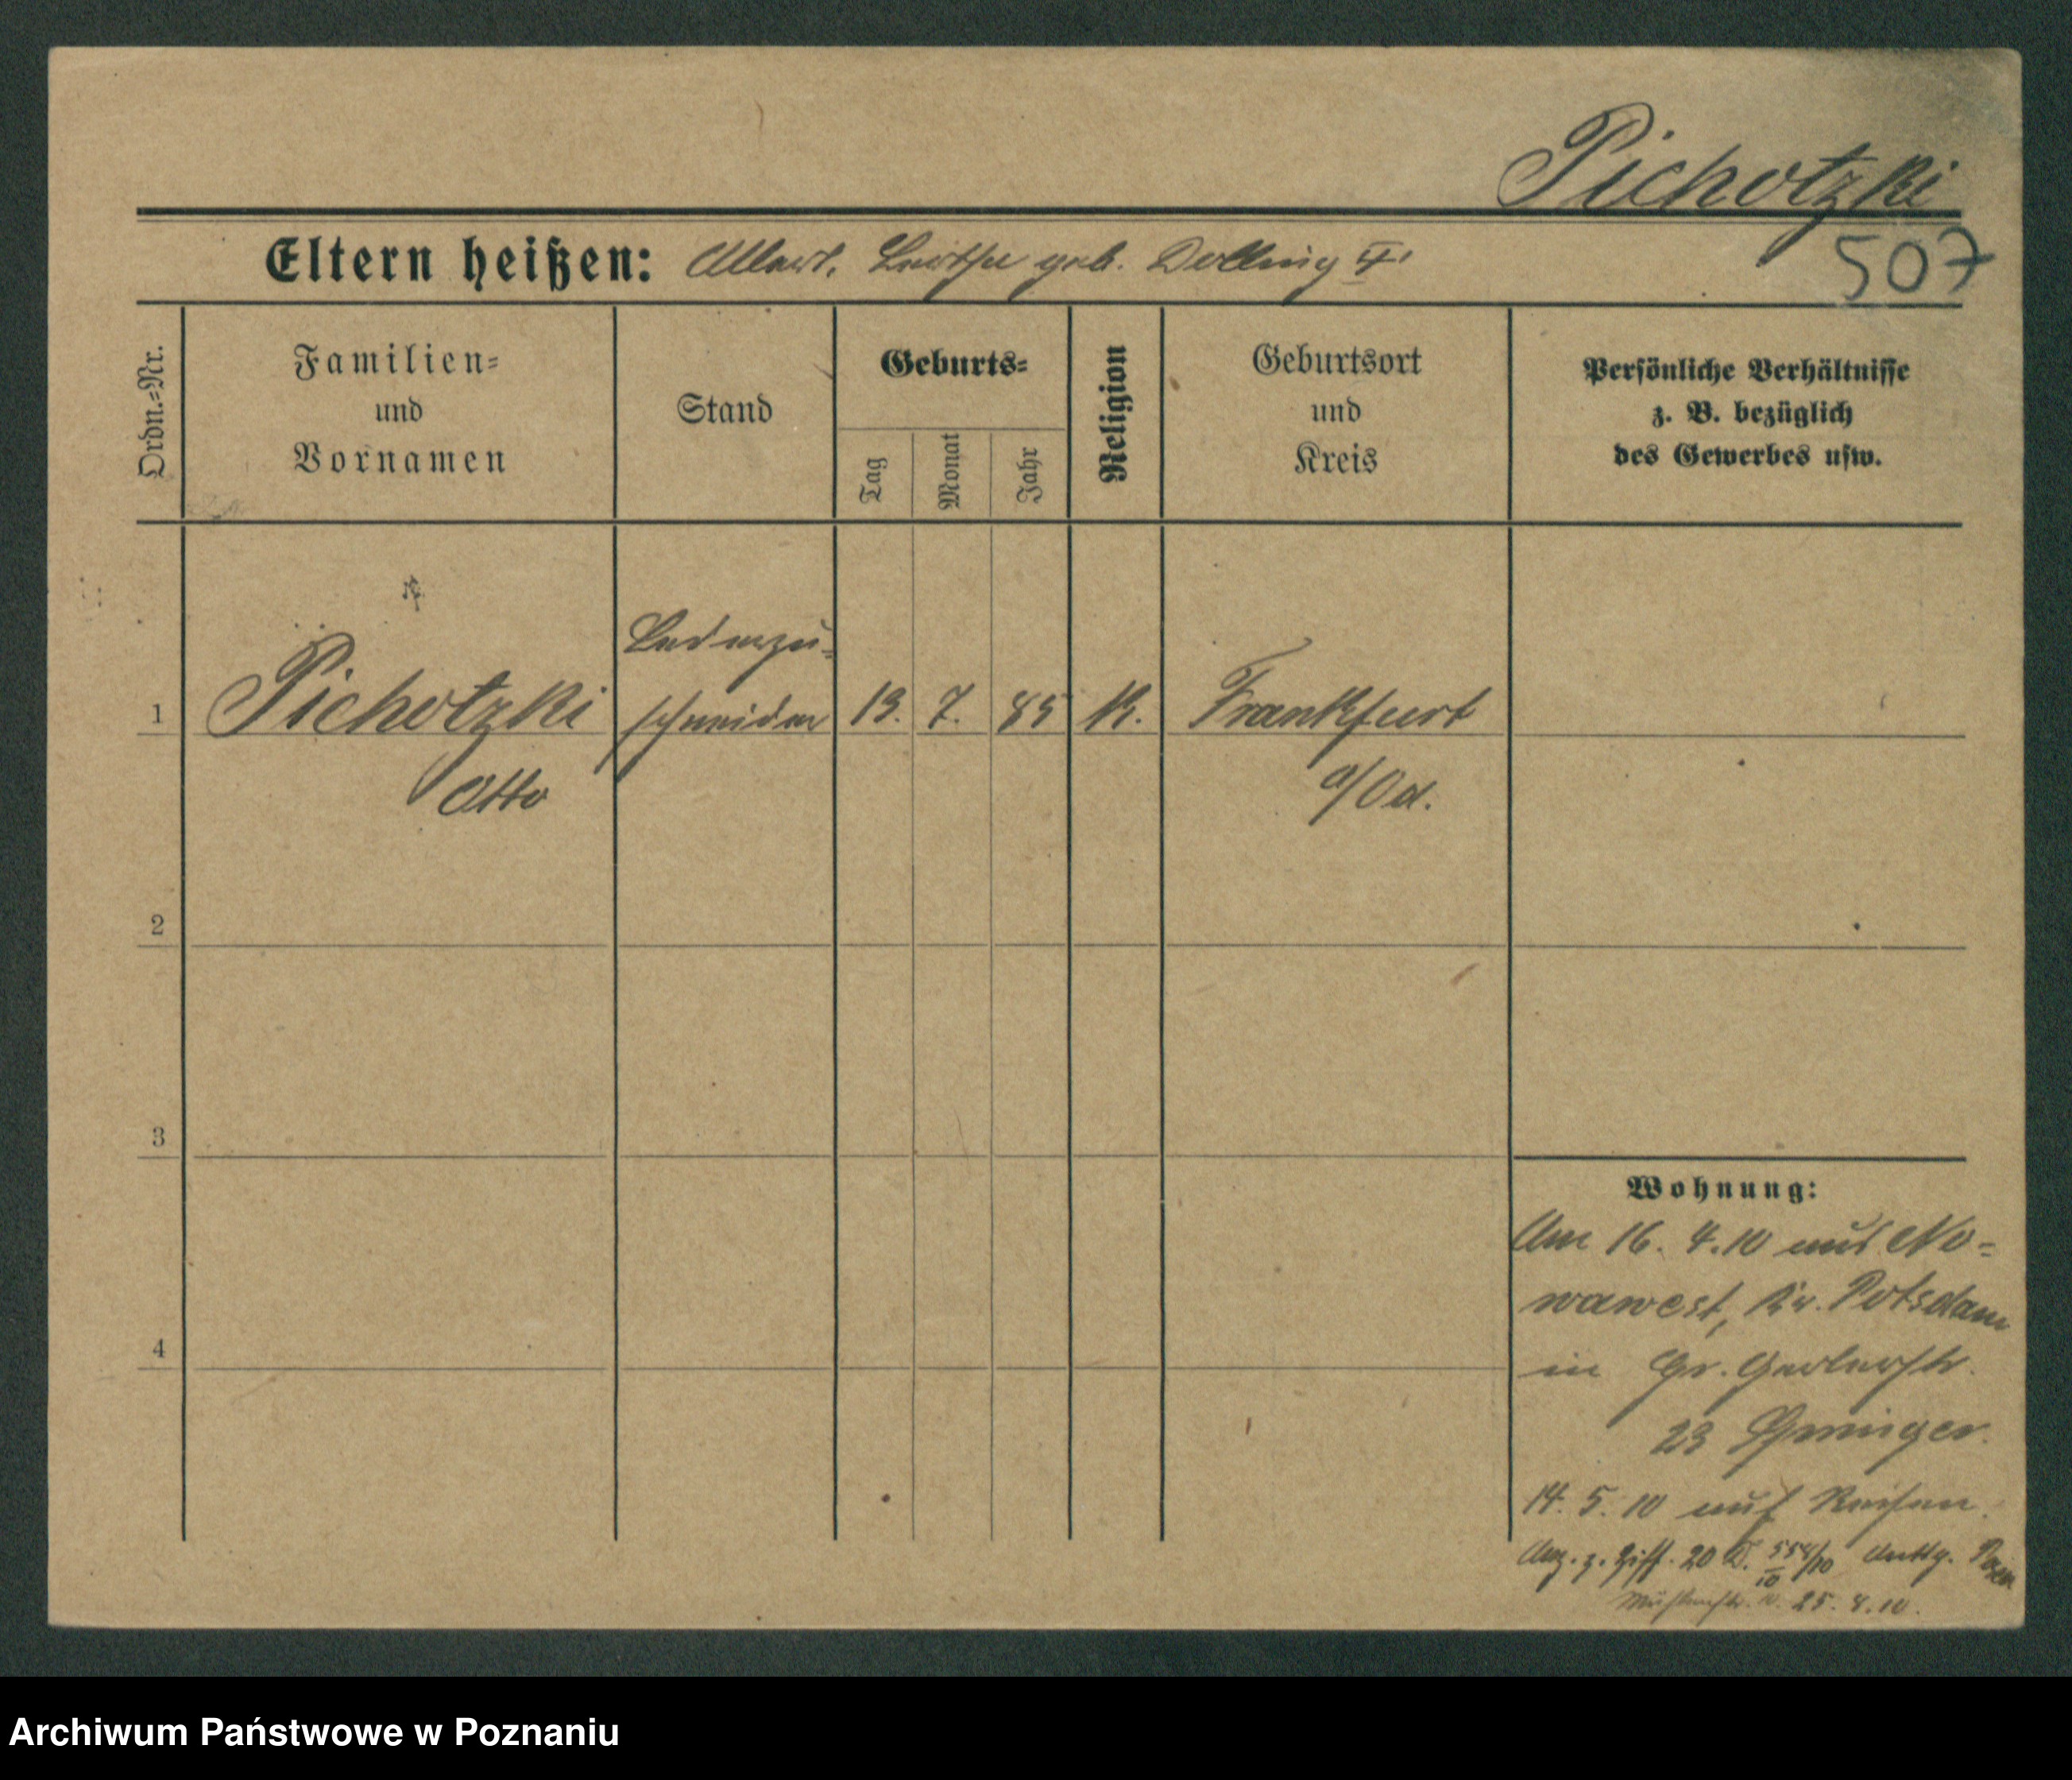 Pichotzki
507
Eltern heißen: Albert, Bertha geb. Dolling
Ordn.-Nr.
Familien-
und
Vornamen
Stand
Geburts-
Tag
Monat
Jahr
Religion
Geburtsort
und
Kreis
Persönliche Verhältnisse
z. B. bezüglich
des Gewerbes usw.
1
Pichotzki
Otto
Lederzu-
schneider
13. 7. 85
K.
Frankfurt
a/Od.
2
3
4
Wohnung:
Am 16. 4. 10 aus No-
wawest, Kr. Potsdam
in Gr. Gerberstr.
23
14. 5. 10 auf Reisen.
20
25. 8. 10.
Archiwum Państwowe w Poznaniu